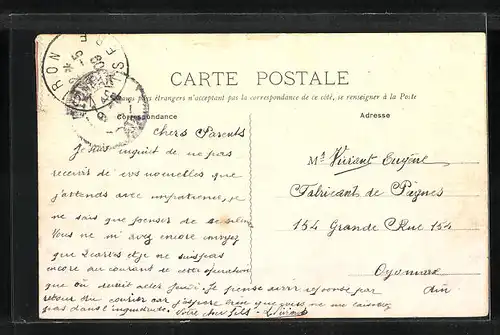 CARTE POSTALE
pays étrangers n'acceptant pas la correspondance de ce côté, se renseigner à la Poste
Correspondance
Adresse
Chers Parents
Je suis inquiet de ne pas
recevoir de vos nouvelles que
j'attends avec impatience, je
ne sais que penser de
Vous ne m'avez encore envoyé
que 2 cartes et je ne suis pas
encore au courant de cette opération
que
Je pense avoir réponse par
retour du courrier car j'espère bien que vous ne me laisserez
pas dans l'inquiétude. Votre fils
Mr Vivant Eugène
Fabricant de Peignes
154 Grande Rue 154
Oyonnax
Ain